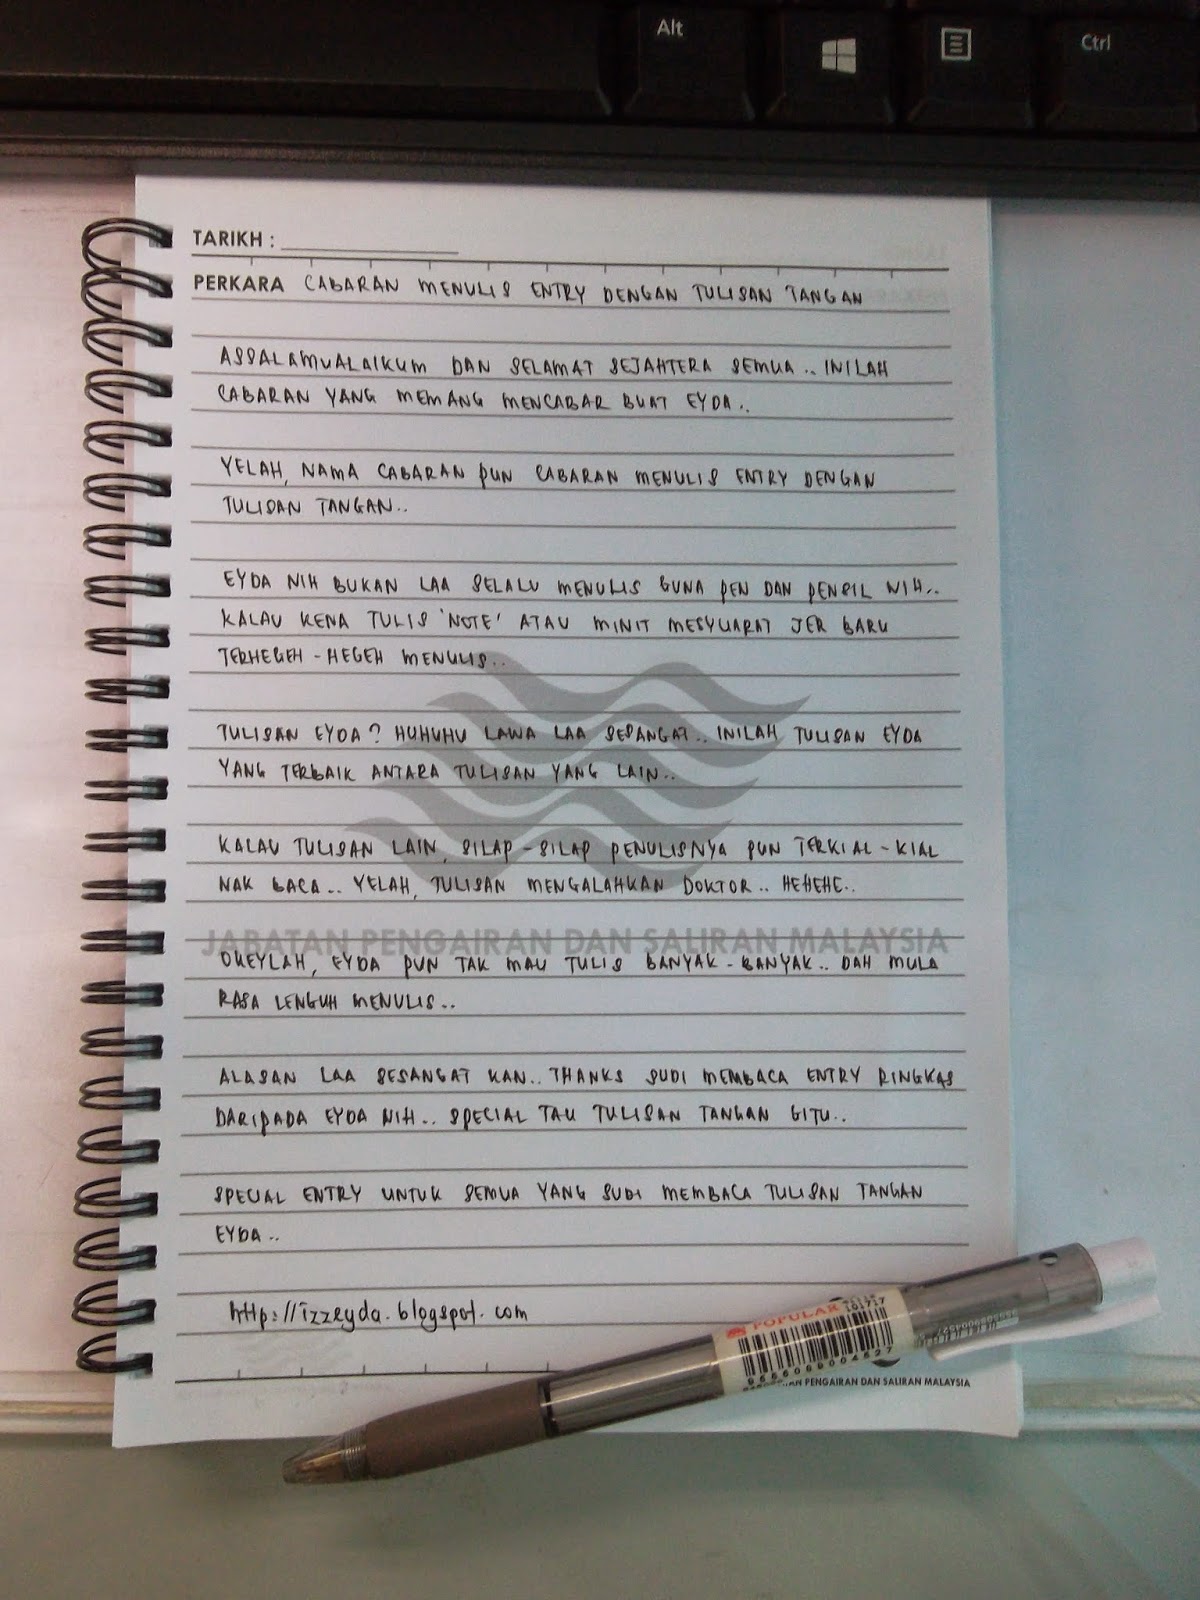 Alt
Ctrl
TARIKH :
PERKARA CABARAN MENULIS ENTRY DENGAN TULISAN TANGAN
ASSALAMUALAIKUM DAN SELAMAT SEJAHTERA SEMUA.. INILAH
CABARAN YANG MEMANG MENCABAR BUAT EYDA..
YELAH, NAMA CABARAN PUN CABARAN MENULIS ENTRY DENGAN
TULISAN TANGAN..
EYDA NIH BUKAN LAA SELALU MENULIS GUNA PEN DAN PENSIL NIH..
KALAU KENA TULIS 'NOTE' ATAU MINIT MESYUARAT JER BARU
TERHEGEH-HEGEH MENULIS..
TULISAN EYDA? HUHUHU LAWA LAA SESANGAT.. INILAH TULISAN EYDA
YANG TERBAIK ANTARA TULISAN YANG LAIN..
KALAU TULISAN LAIN, SILAP-SILAP PENULISNYA PUN TERKIAL-KIAL
NAK BACA.. YELAH, TULISAN MENGALAHKAN DOKTOR.. HEHEHE..
JABATAN PENGAIRAN DAN SALIRAN MALAYSIA
OKEYLAH, EYDA PUN TAK MAU TULIS BANYAK-BANYAK.. DAH MULA
RASA LENGUH MENULIS..
ALASAN LAA SESANGAT KAN.. THANKS SUDI MEMBACA ENTRY RINGKAS
DARIPADA EYDA NIH.. SPECIAL TAU TULISAN TANGAN GITU..
SPECIAL ENTRY UNTUK SEMUA YANG SUDI MEMBACA TULISAN TANGAN
EYDA..
http://izzeyda.blogspot.com
POPULAR
101717
9556089004527
PENGAIRAN DAN SALIRAN MALAYSIA